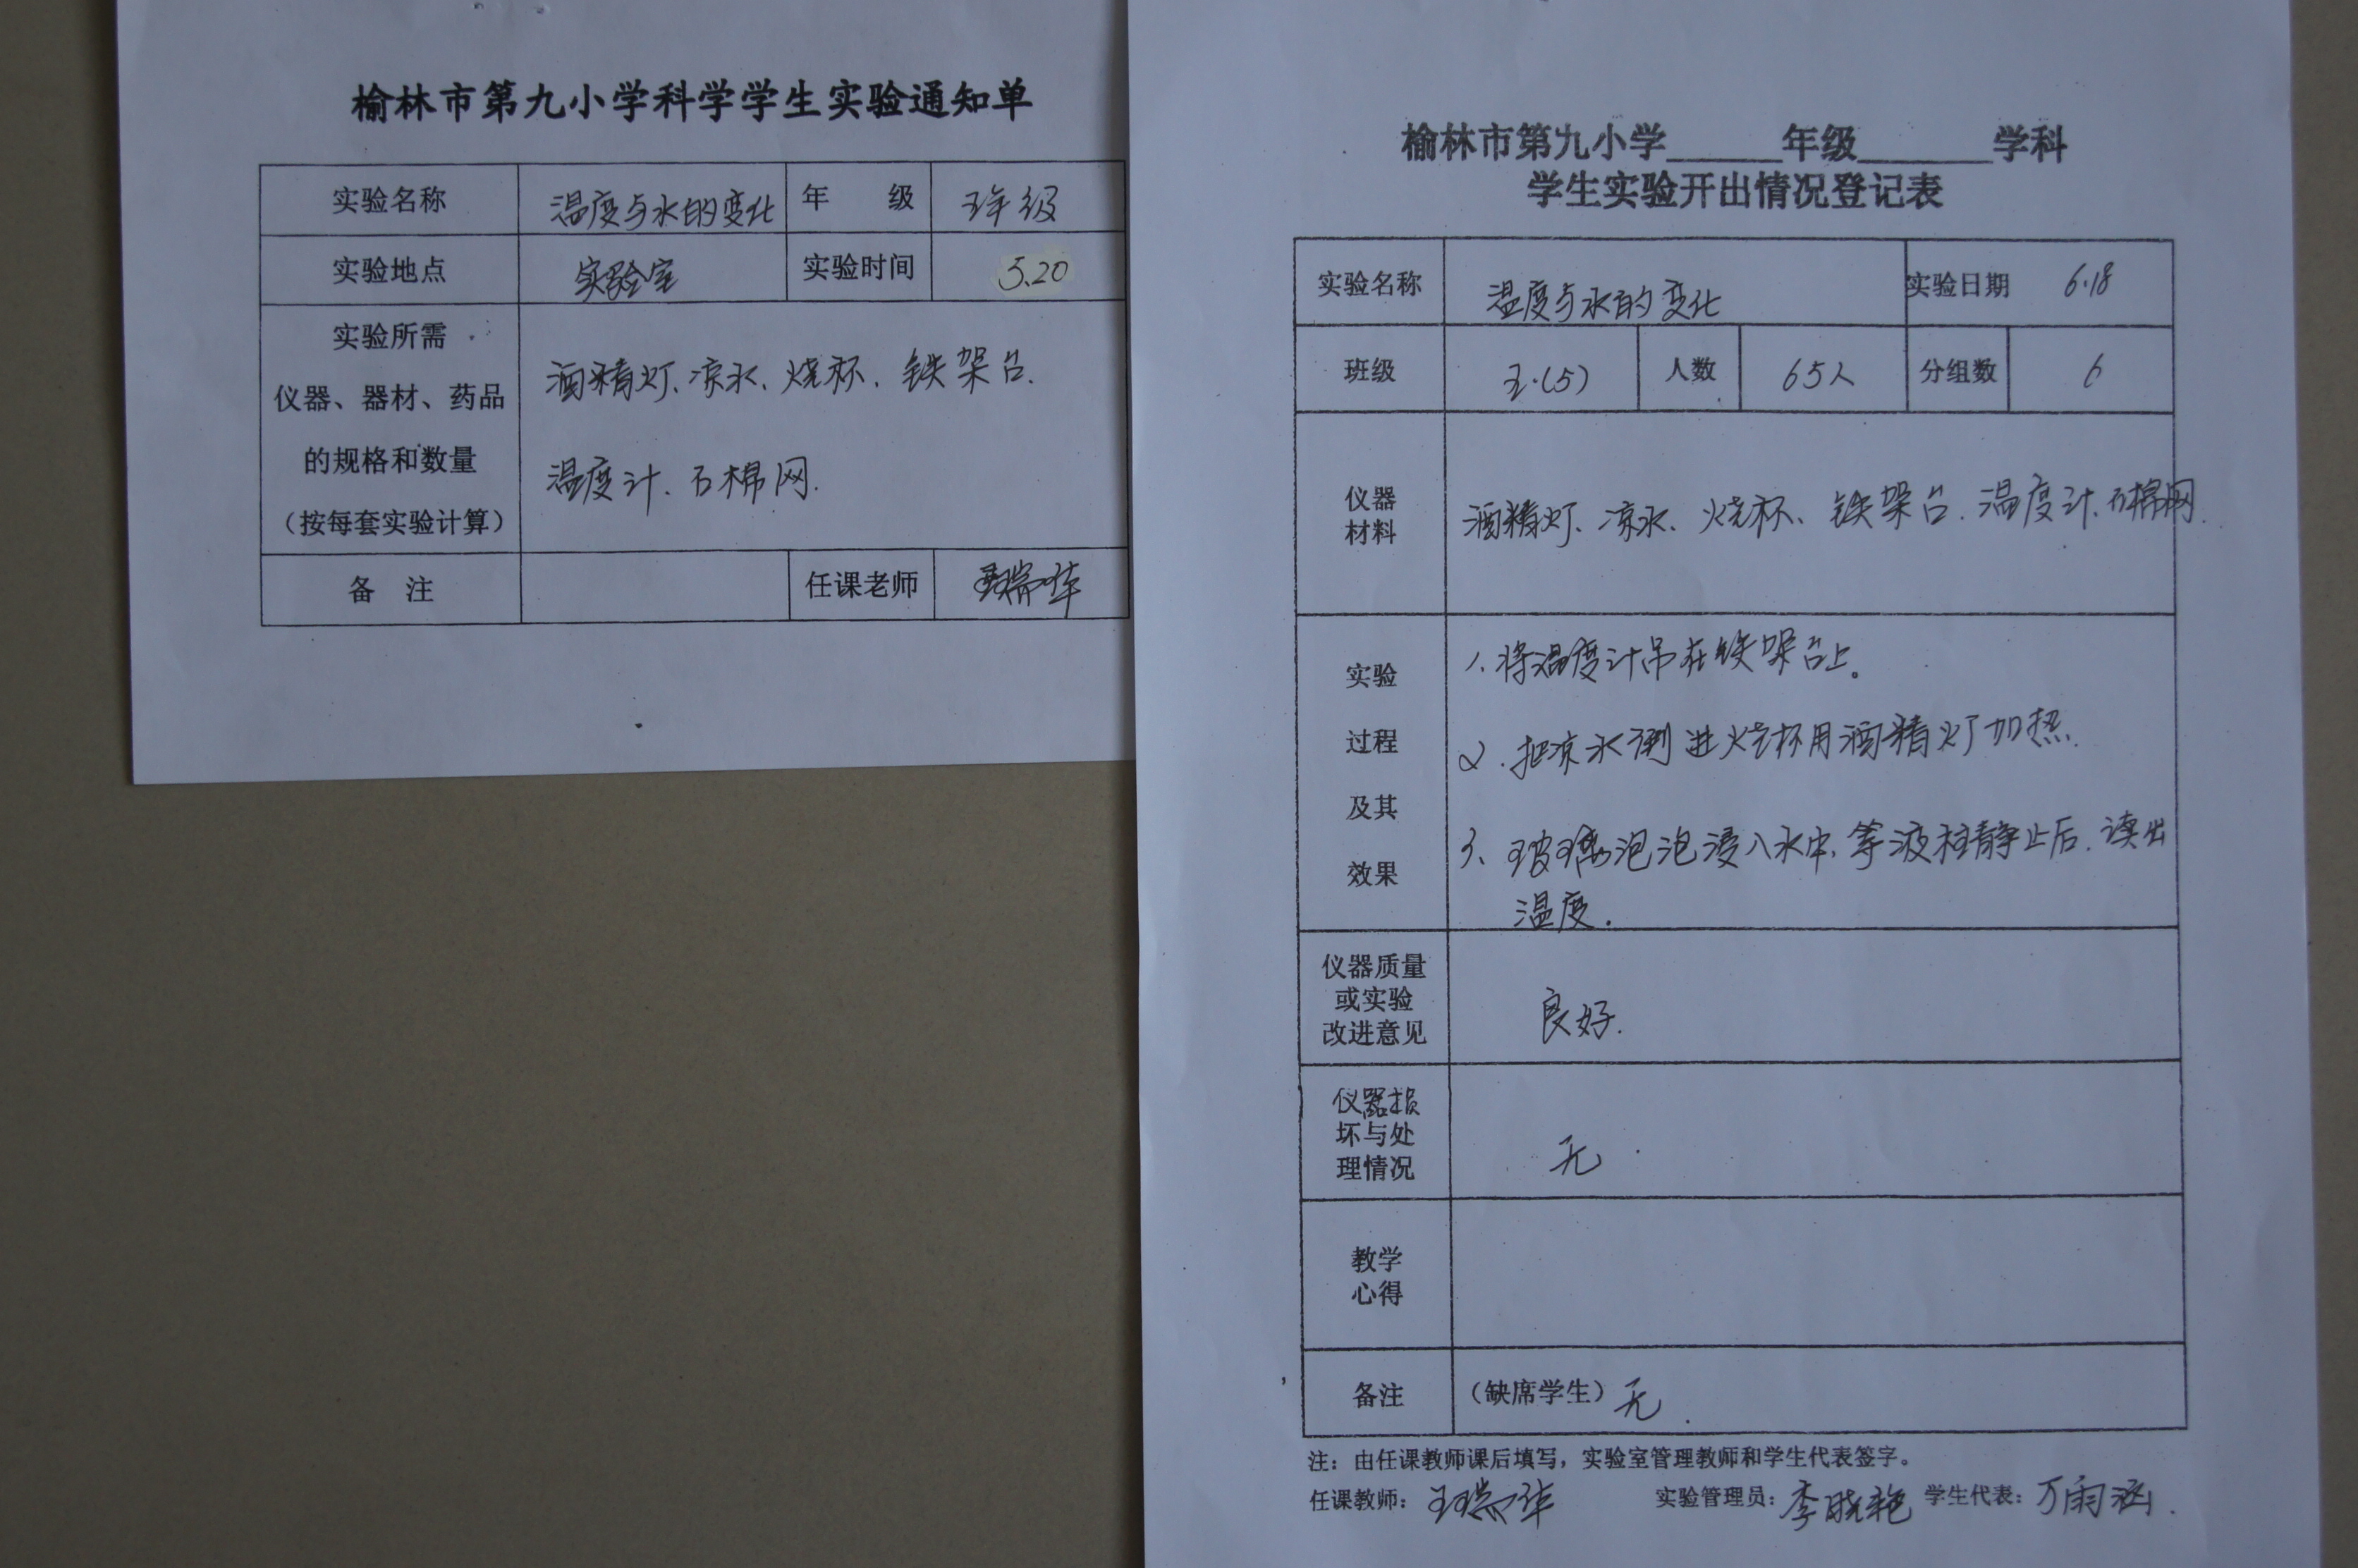 榆林市第九小学科学学生实验通知单
实验名称 温度与水的变化 年 级 五年级
实验地点 实验室 实验时间 5.20
实验所需
仪器、器材、药品
的规格和数量
（按每套实验计算）
酒精灯、凉水、烧杯、铁架台、
温度计、石棉网.
备 注 任课老师 王瑞华
榆林市第九小学______年级______学科
学生实验开出情况登记表
实验名称 温度与水的变化 实验日期 6.18
班级 五.(5) 人数 65人 分组数 6
仪器
材料
酒精灯、凉水、烧杯、铁架台、温度计、石棉网.
实验
过程
及其
效果
1、将温度计吊在铁架台上。
2、把凉水倒进烧杯用酒精灯加热.
3、玻璃泡泡浸入水中,等液柱静止后.读出
温度.
仪器质量
或实验
改进意见
良好.
仪器损
坏与处
理情况
无.
教学
心得
备注 （缺席学生）无.
注：由任课教师课后填写，实验室管理教师和学生代表签字。
任课教师：王瑞华 实验管理员：李晓艳 学生代表：万雨涵.